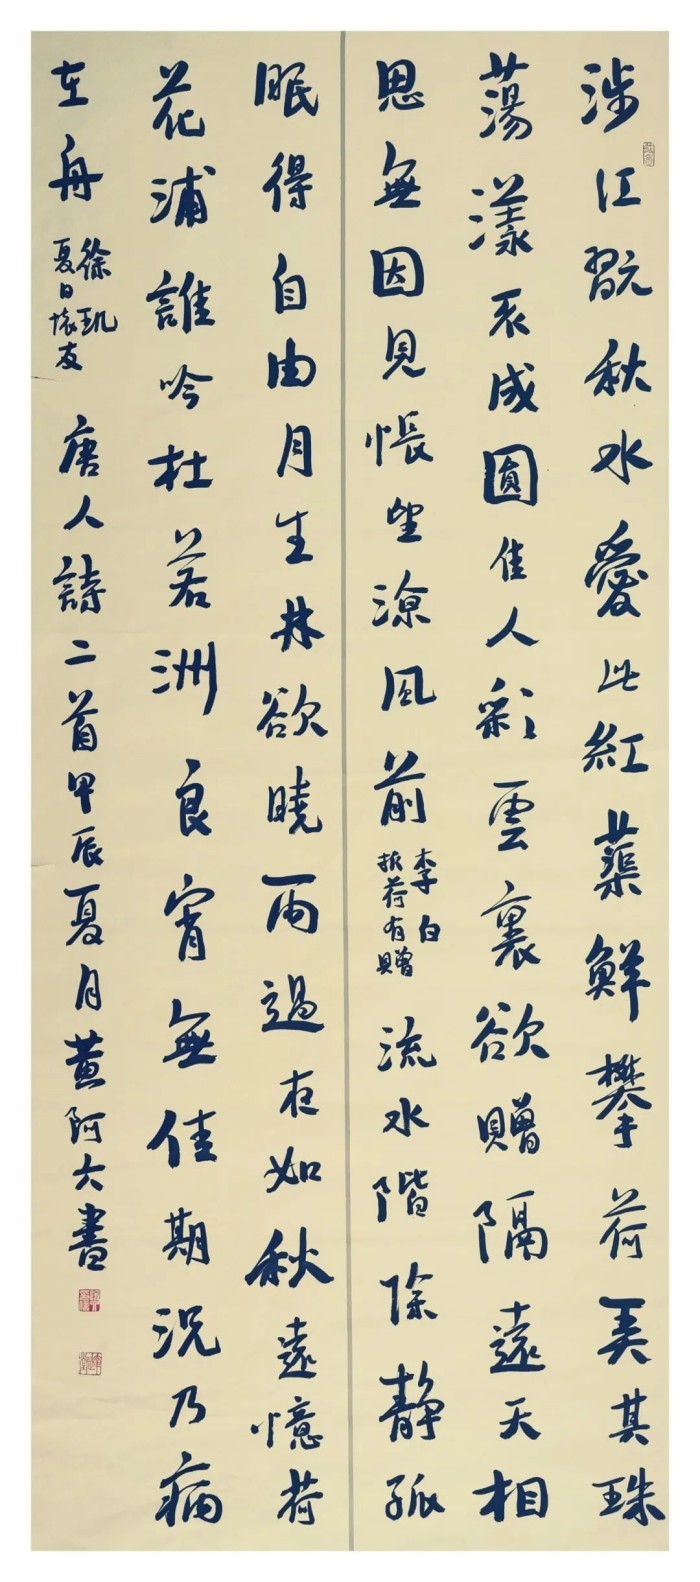 涉江翫秋水愛此紅蕖鮮攀荷弄其珠
蕩漾不成圓佳人彩雲裏欲贈隔遠天相
思無因見悵望涼風前
李白
折荷有贈
流水階除靜孤
眠得自由月生林欲曉雨過夜如秋遠憶荷
花浦誰吟杜若洲良宵無佳期況乃病
在舟
徐玑
夏日懷友
唐人詩二首甲辰夏月黄阿六書